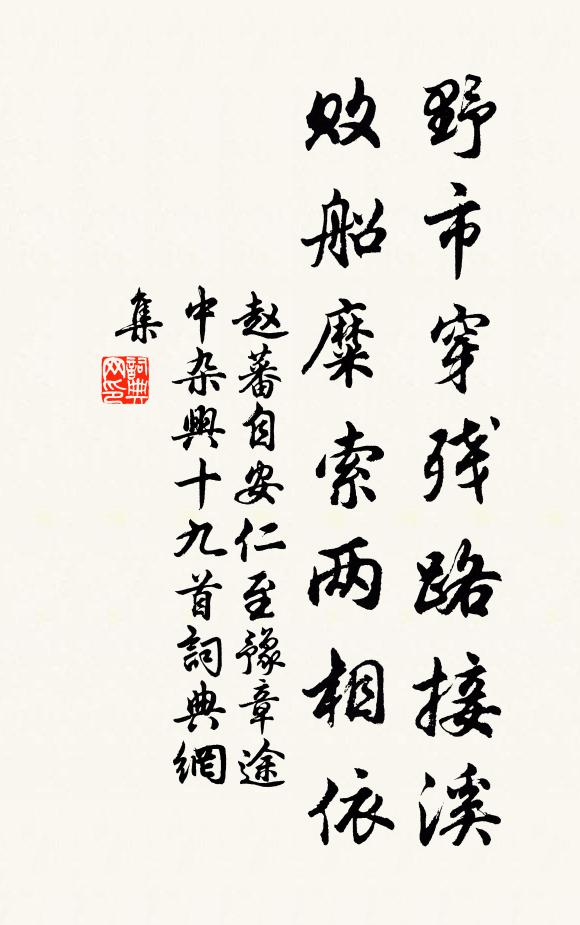 野市穿残路接溪
败船糜索两相依
赵蕃自安仁至豫章途
中杂興十九首詞典網
集
詞典
网印